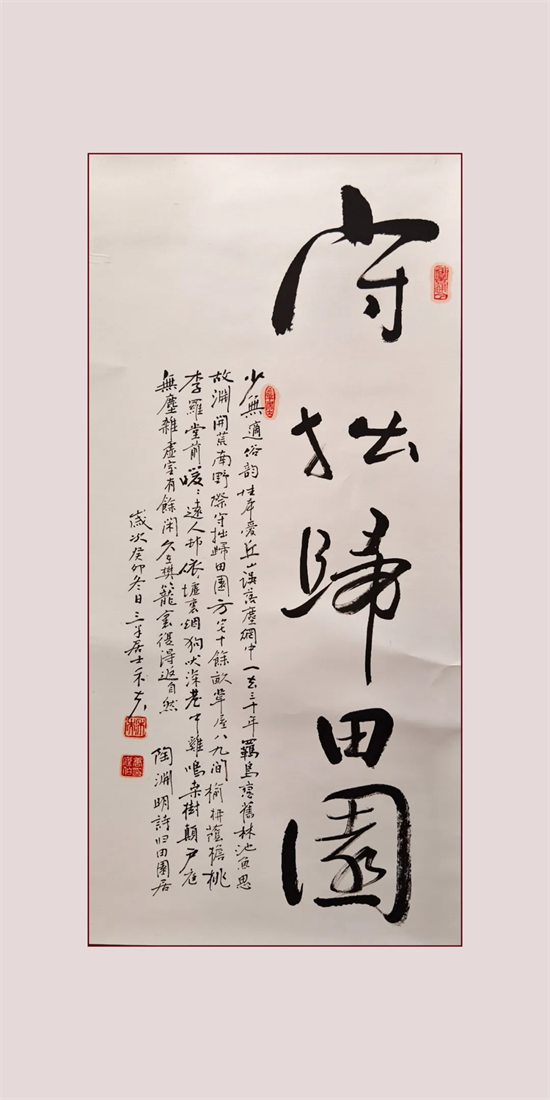 守拙歸田園
少無適俗韵性本愛丘山誤落塵網中一去三十年羈鳥戀舊林池魚思
故淵開荒南野際守拙歸田園方宅十餘畝草屋八九間榆柳蔭檐桃
李羅堂前暧〻遠人邨依〻墟裏烟狗吠深巷中雞鳴桑樹顛户庭
無塵雜虛室有餘閑久在樊籠裏復得返自然 陶淵明詩归田園居
歲次癸卯冬日三半居士